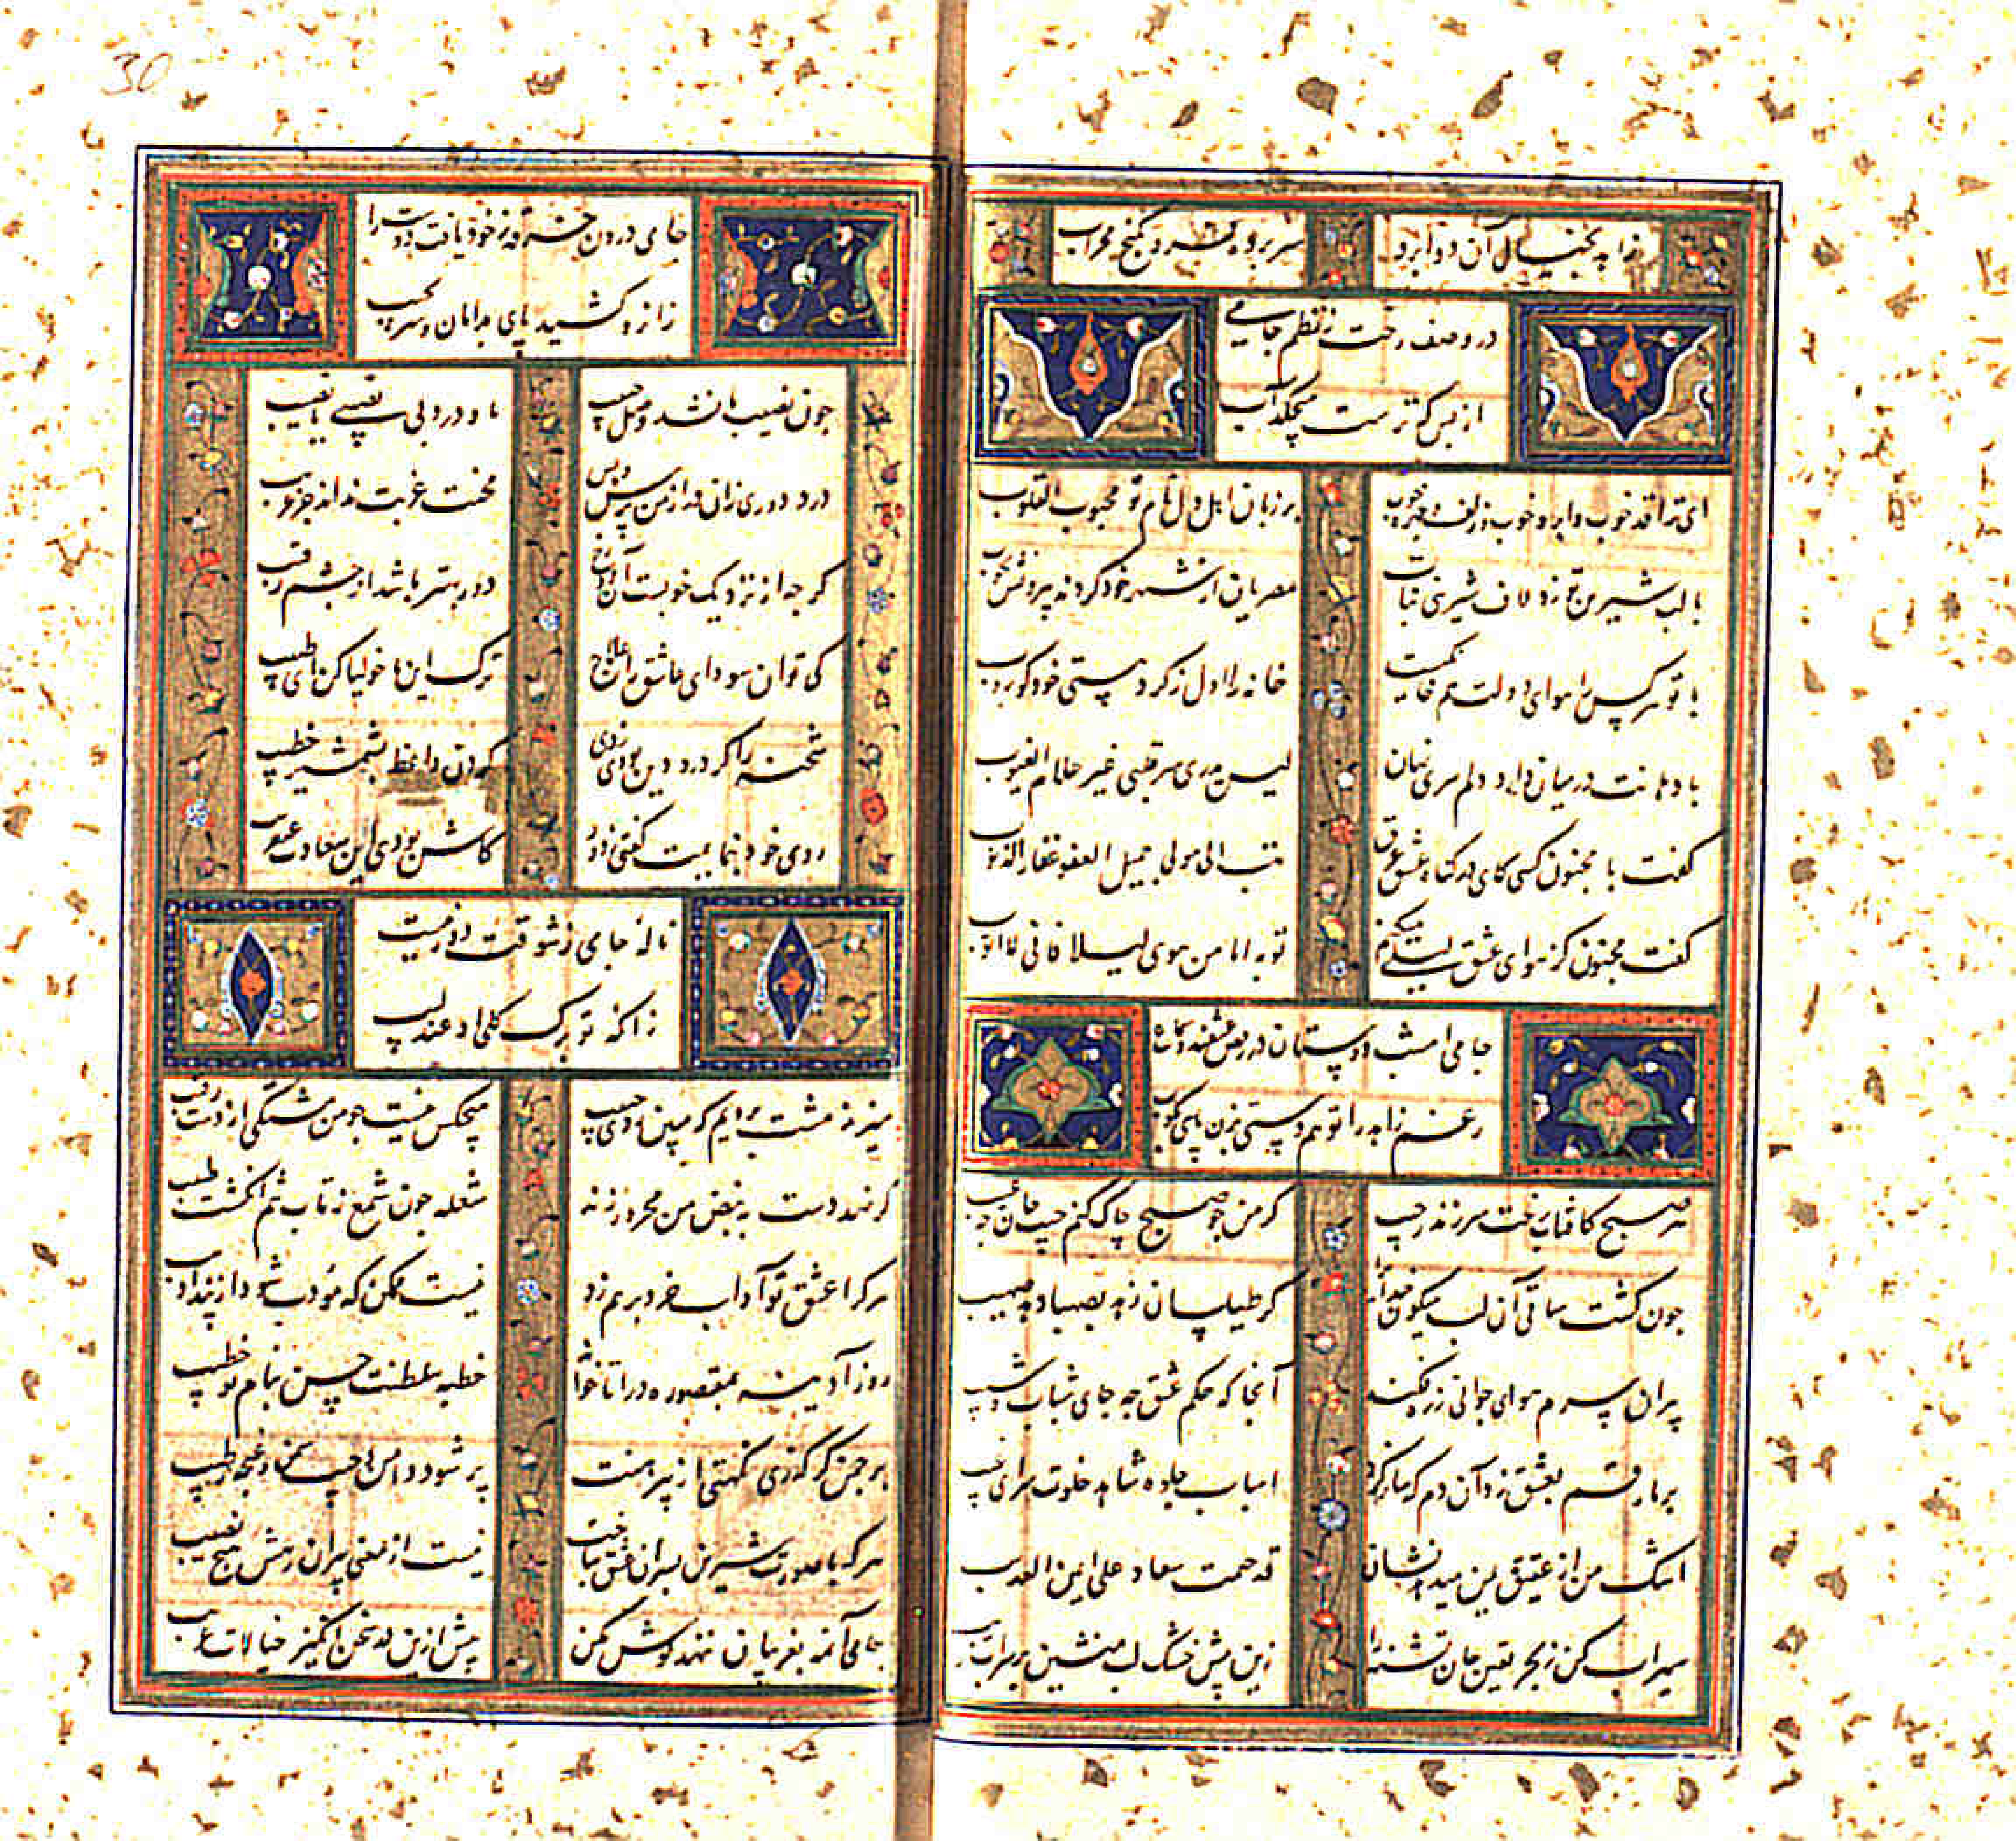 30
زاهد بخیال آن دو ابرو
سر برده فرو بکنج محراب
در وصف رخت ز نظم جامی
از بس که ترست میچکد آب
ای ترا قد خوب و ابرو خوب و زلف و چهره خوب
بر زبان اهل دل نام تو محبوب القلوب
با لب شیرین تو زد لاف شیرینی نبات
مصریان از شهر خود کردند بیرونش بچوب
با تو هر کس را هوای دولت هم خانگیست
خانه را اول ز کرد هستی خود کو بروب
با دهانت در میان دارد دلم سری نهان
لیس یدری سر قلبی غیر علام الغیوب
گفت با مجنون کسی کای در گناه عشق غرق
تب الی مولی جمیل العفو غفار الذنوب
گفت مجنون کز هوای عشق لیلی نگذرم
توبه اما من هوی لیلا فانی لا اتوب
جامی امشب دوستان در رقص عشقند و سماع
رغم زاهد را تو هم دستی بزن پایی بکوب
هر صبح کافتاب رخت سر زند ز جیب
گر من چو صبح چاک کنم جیب جان چه عیب
چون گشت ساقی آن لب میگون خدای را
کر طیلسان زهد بصهبا دهد صهیب
پیران سرم هوای جوانی ز ره فکند
آنجا که حکم عشق چه جای شباب و شیب
بر ما رقم بعشق زد آن دم که ساز کرد
اسباب جلوه شاهد خلوت سرای غیب
اشک من از عقیق یمن میدهد نشان
سیراب کن ز بحر یقین جان تشنه را
زین پیش خشک لب منشین بر سراب ریب
جامی درون خرقه ز خود یافت دوست را
زانرو کشید پای بدامان و سر بجیب
چون نصیب ما نشد وصل حبیب
ما و درد بی نصیبی یا نصیب
درد دوری زان مه از من پرس و بس
محنت غربت نداند جز غریب
گرچه از نزدیک خوبست آن دو رخ
دور بهتر باشد از چشم رقیب
کی توان سودای عاشق را علاج
ترک این ماخولیا کن ای طبیب
شحنه را گر درد دین بودی زدی
گردن واعظ بشمشیر خطیب
روی خود بنمایمت گفتی ز دور
کاش بودی این سعادت عنقریب
ناله جامی ز شوقت دور نیست
زانکه تو برگ گلی او عندلیب
هیچکس نیست چو من خسته کی از دست رقیب
گر نهد دست به نبض من محرور زند
شعله چون شمع ز تاب تبم انگشت طبیب
هر کرا عشق تو آداب خرد بر هم زد
نیست ممکن که مؤدب شود از پند ادیب
روز آدینه بمقصوره درا تا خواند
خطبه سلطنت حسن بنام تو خطیب
بر چمن گر گذری نکهتی از پیرهنت
پر شود دامن و جیب سمن و غنچه ز طیب
هر که با صورت شیرین پسران عشق نباخت
نیست از معنی پیران رهش هیچ نصیب
جامی آن مه بغریبان ننهد گوش مکن
بیش ازین در سخن انگیز خیالات غریب